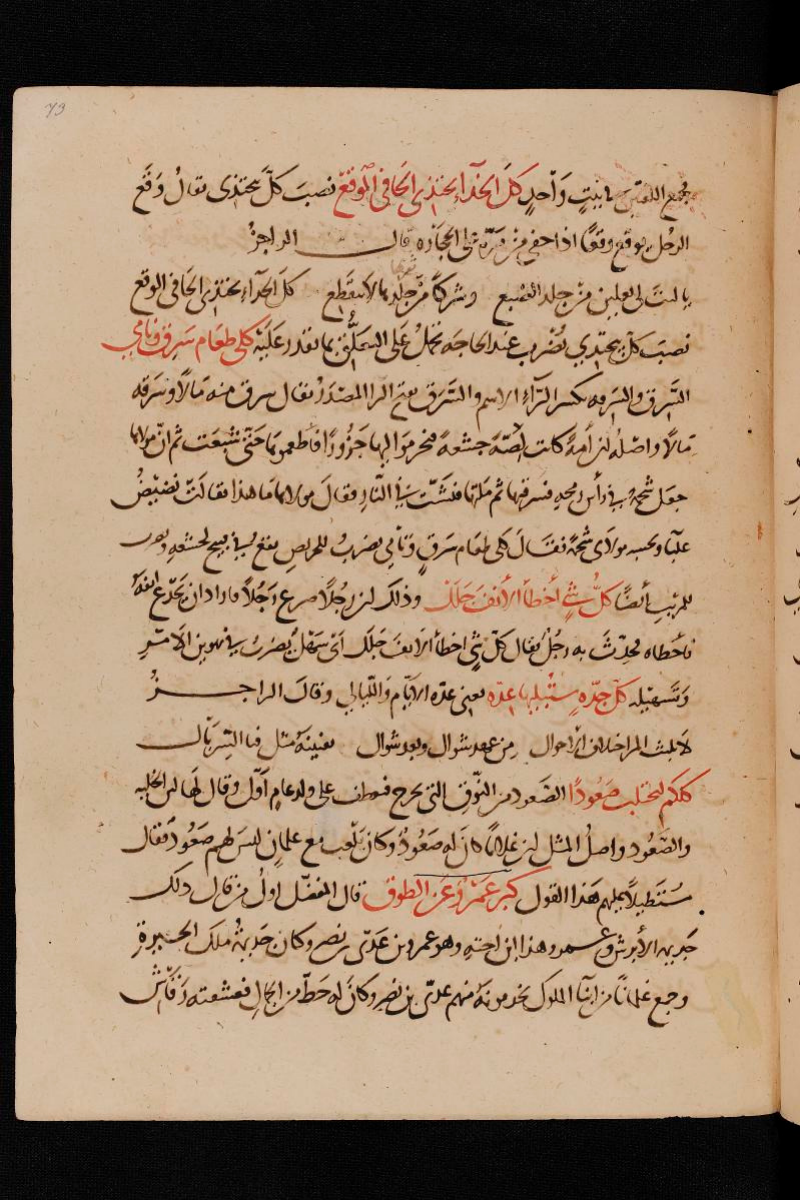 73
فجمع اللغتين في بيت واحد كل الحذاء يحتذي الحافي الوقع نصب كل يحتذى يقال وقع
الرجل يوقع وقعًا اذا حفي من مره على الحجاره قال الراجز
يا ليت لي نعلين من جلد الضبع وشركا من جلدها لا تنقطع كل الحذاء يحتذي الحافي الوقع
نصب كل يحتذي يضرب عند الحاجه تحمل على التعلق بما يقدر عليه كلي طعام سرق ونامي
السرق والسرقه بكسر الراء الاسم والسرق بفتح الرا المصدر يقال سرق منه مالا وسرقه
مالا واصله ان امة كانت لصة جشعة فنحر مواليها جزورًا فاطعموها حتى شبعت ثم ان مولاها
جعل شحمة في رأس رمحه فسرقتها ثم ملتها فنشت في النار فقال مولاها ما هذا فقالت نضيض
علبا ويحسبه مولاى شحمة فقال كلي طعام سرق ونامي يضرب للحريص يقع في قبيح لجشعه ويضرب
للمريب أيضًا كل شي أخطأ الأنف جلل وذلك ان رجلًا صرع رجلًا فاراد ان يجدع انفه
فأخطاه فحدث به رجل فقال كل شي اخطا الانف جلل اى سهل يضرب في تهوين الامر
وتسهيله كل جدة ستبليها عدّه يعني عدّه الايام والليالي وقال الراجز
لا يلبث المرا اختلاف الاحوال من عهد شوال وبعد شوال يفنينه مثل فنا السربال
كلكم ليحتلب صعودًا الصعود من النوق التي تخدج فتعطف على ولد عام اول وقال لها لبن الخليه
والصعود واصل المثل ان غلامًا كان له صعود وكان يلعب مع غلمان ليس لهم صعود فقال
مستطيلًا عليهم هذا القول كبر عمرو عن الطوق قال المفضل اول من قال ذلك
جذيمه الأبرش وعمرو هذا ابن اخته وهو عمرو بن عدى بن نصر وكان جذيمة ملك الحيرة
وجمع غلمانًا من ابنآ الملوك يخدمونه منهم عدى بن نصر وكان له حظ من الجمال فعشقته رقاش